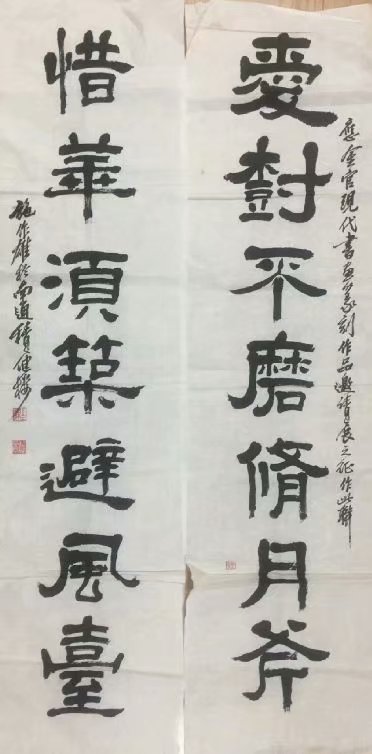 應金官現代書畫篆刻作品邀請展之征作此聯
愛樹不磨脩月斧
惜華須築避風臺
施作雄於南通積健樓